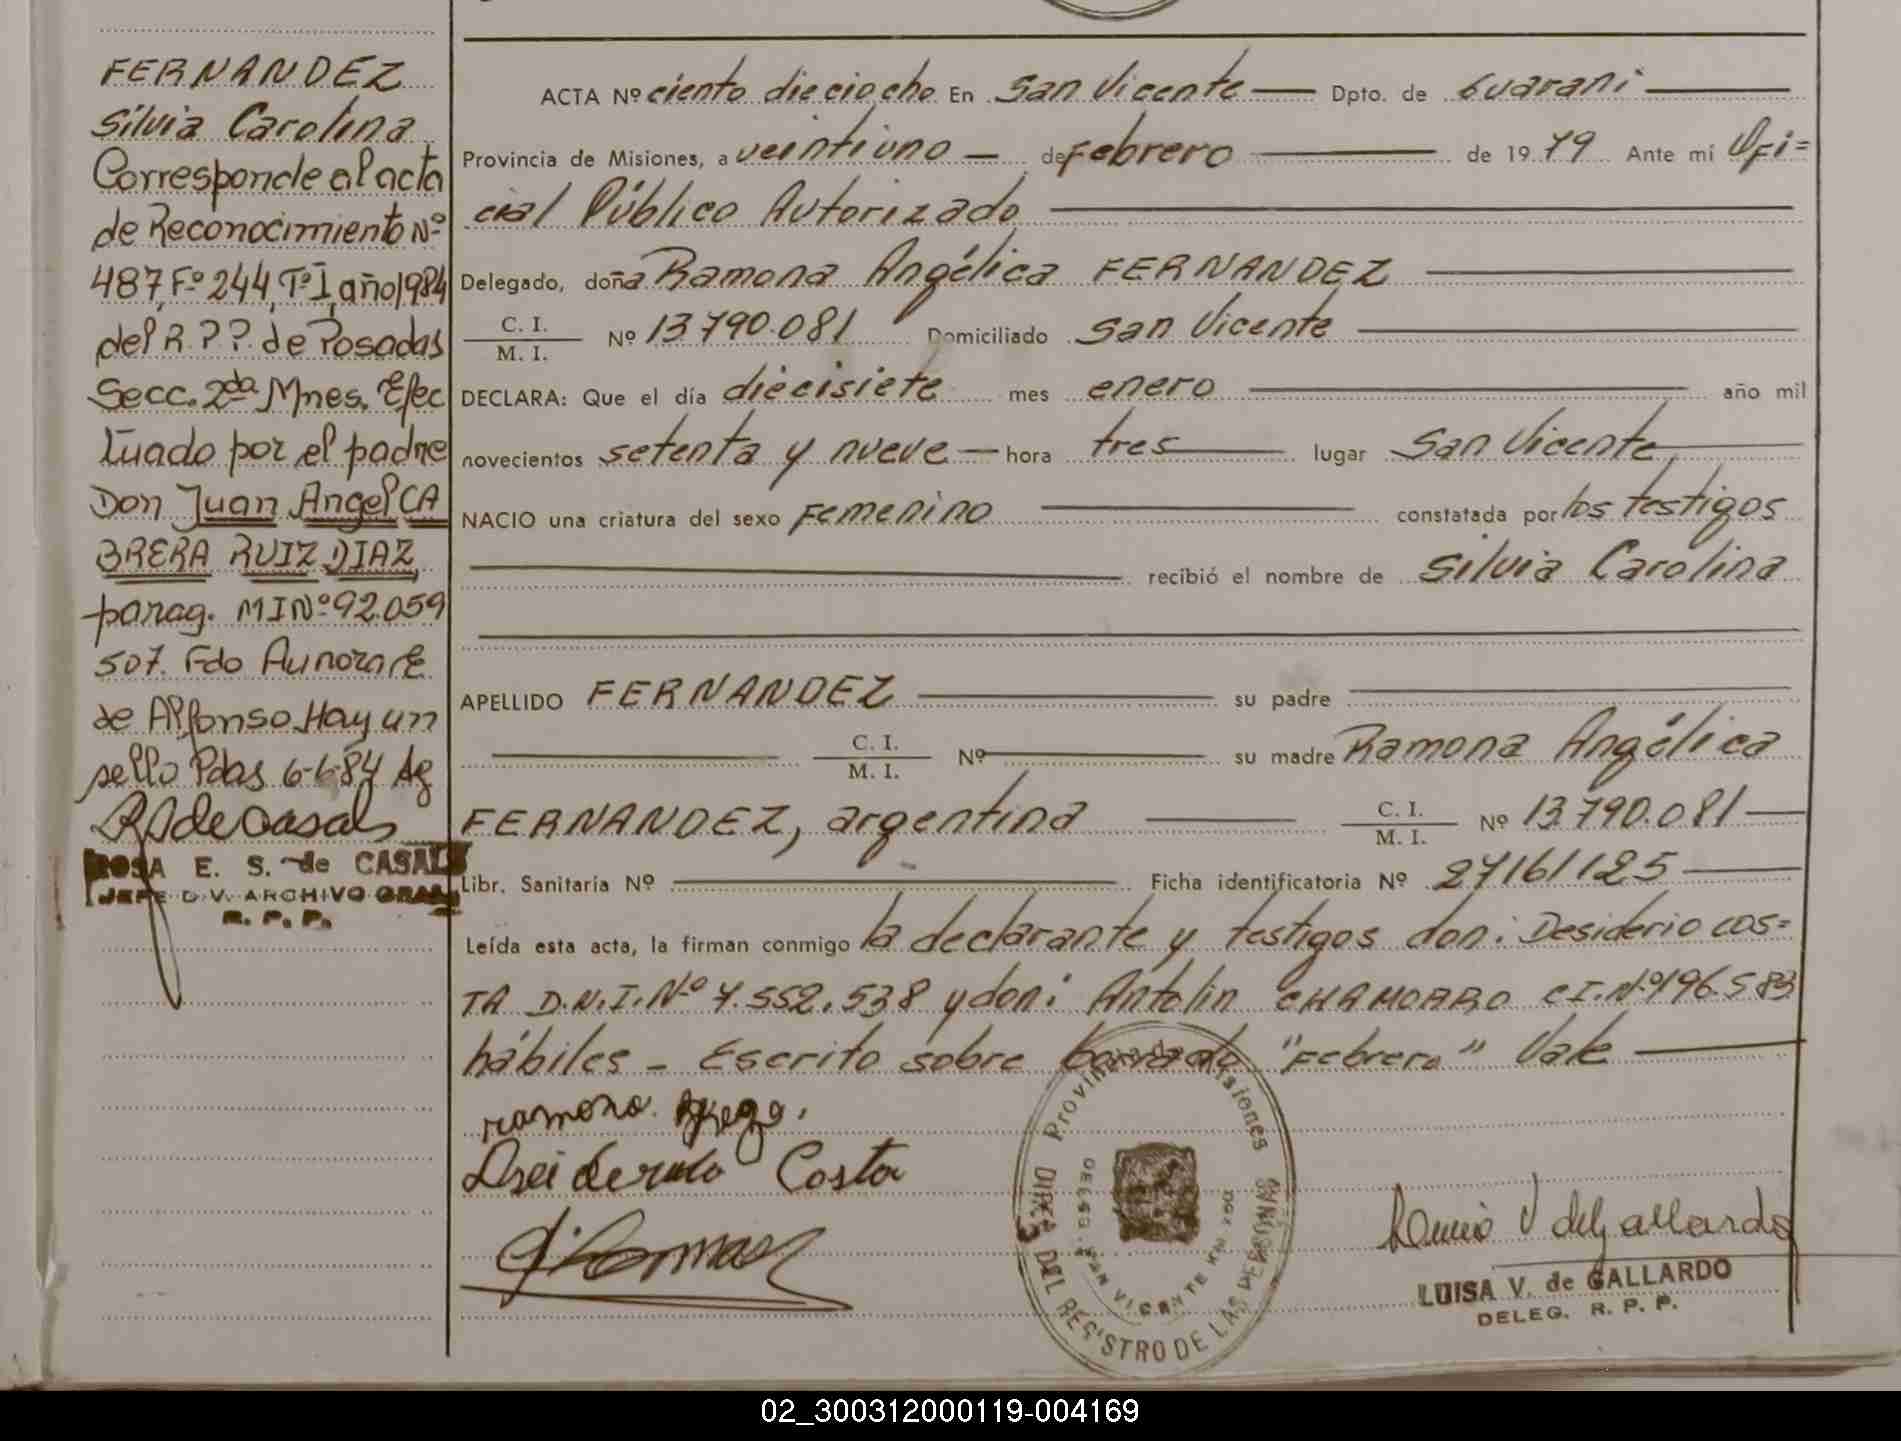 FERNANDEZ
Silvia Carolina
Corresponde al acta
de Reconocimiento Nº
487, Fº 244, Tº I, año 1984
del R.P.P. de Posadas
Secc. 2da Mnes. Efec
tuado por el padre
Don Juan Angel CA
BRERA RUIZ DIAZ,
parag. MI Nº 92.059
507. Fdo Aurora E.
de Alfonso. Hay un
sello Pdas 6-6-84 Ag
ROSA E. S. de CASALS
JEFE DIV. ARCHIVO GRAL.
R. P. P.
ACTA Nº ciento dieciocho En San Vicente Dpto. de Guaraní
Provincia de Misiones, a veintiuno de Febrero de 1979 Ante mí Ofi=
cial Público Autorizado
Delegado, doña Ramona Angélica FERNANDEZ
C. I.
M. I. Nº 13.790.081 Domiciliado San Vicente
DECLARA: Que el día diecisiete mes enero año mil
novecientos setenta y nueve hora tres lugar San Vicente
NACIO una criatura del sexo Femenino constatada por los testigos
recibió el nombre de Silvia Carolina
APELLIDO FERNANDEZ su padre
C. I.
M. I. Nº su madre Ramona Angélica
FERNANDEZ, argentina C. I.
M. I. Nº 13.790.081
Libr. Sanitaria Nº Ficha identificatoria Nº 27161125
Leída esta acta, la firman conmigo la declarante y testigos don: Desiderio COS=
TA D.N.I. Nº 7.552.538 y don: Antolin CHAMORRO C.I. Nº 196.583
hábiles - Escrito sobre borrado "Febrero" Vale
Costa
Provincia de Misiones
DIRC. DEL REGISTRO DE LAS PERSONAS
SAN VICENTE
LUISA V. de GALLARDO
DELEG. R. P. P.
02_300312000119-004169